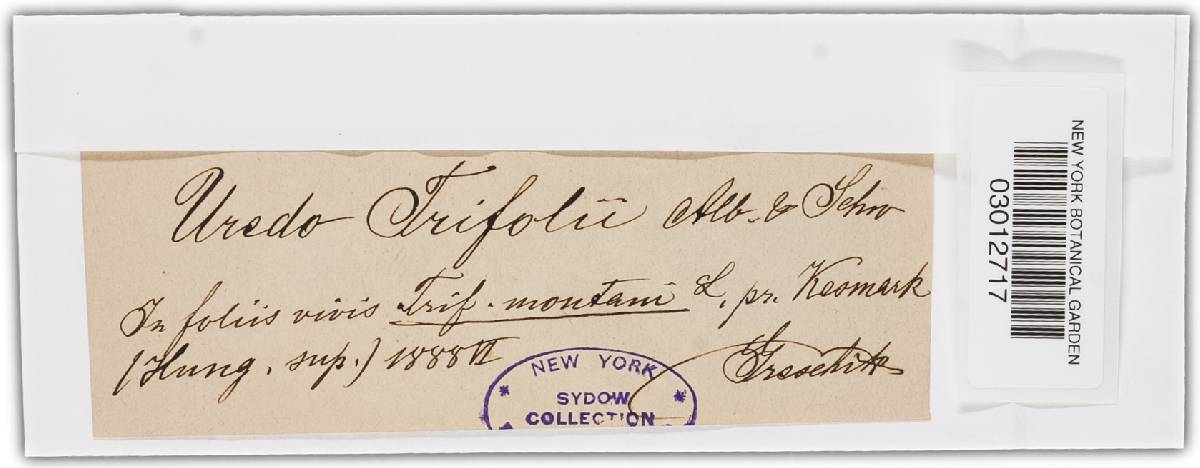 Uredo Trifolii Alb. & Schw
In foliis vivis Trif. montani L, pr. Kesmark
(Hung. sup.) 1888 VI
Greschik
NEW YORK
SYDOW
COLLECTION
NEW YORK BOTANICAL GARDEN
03012717